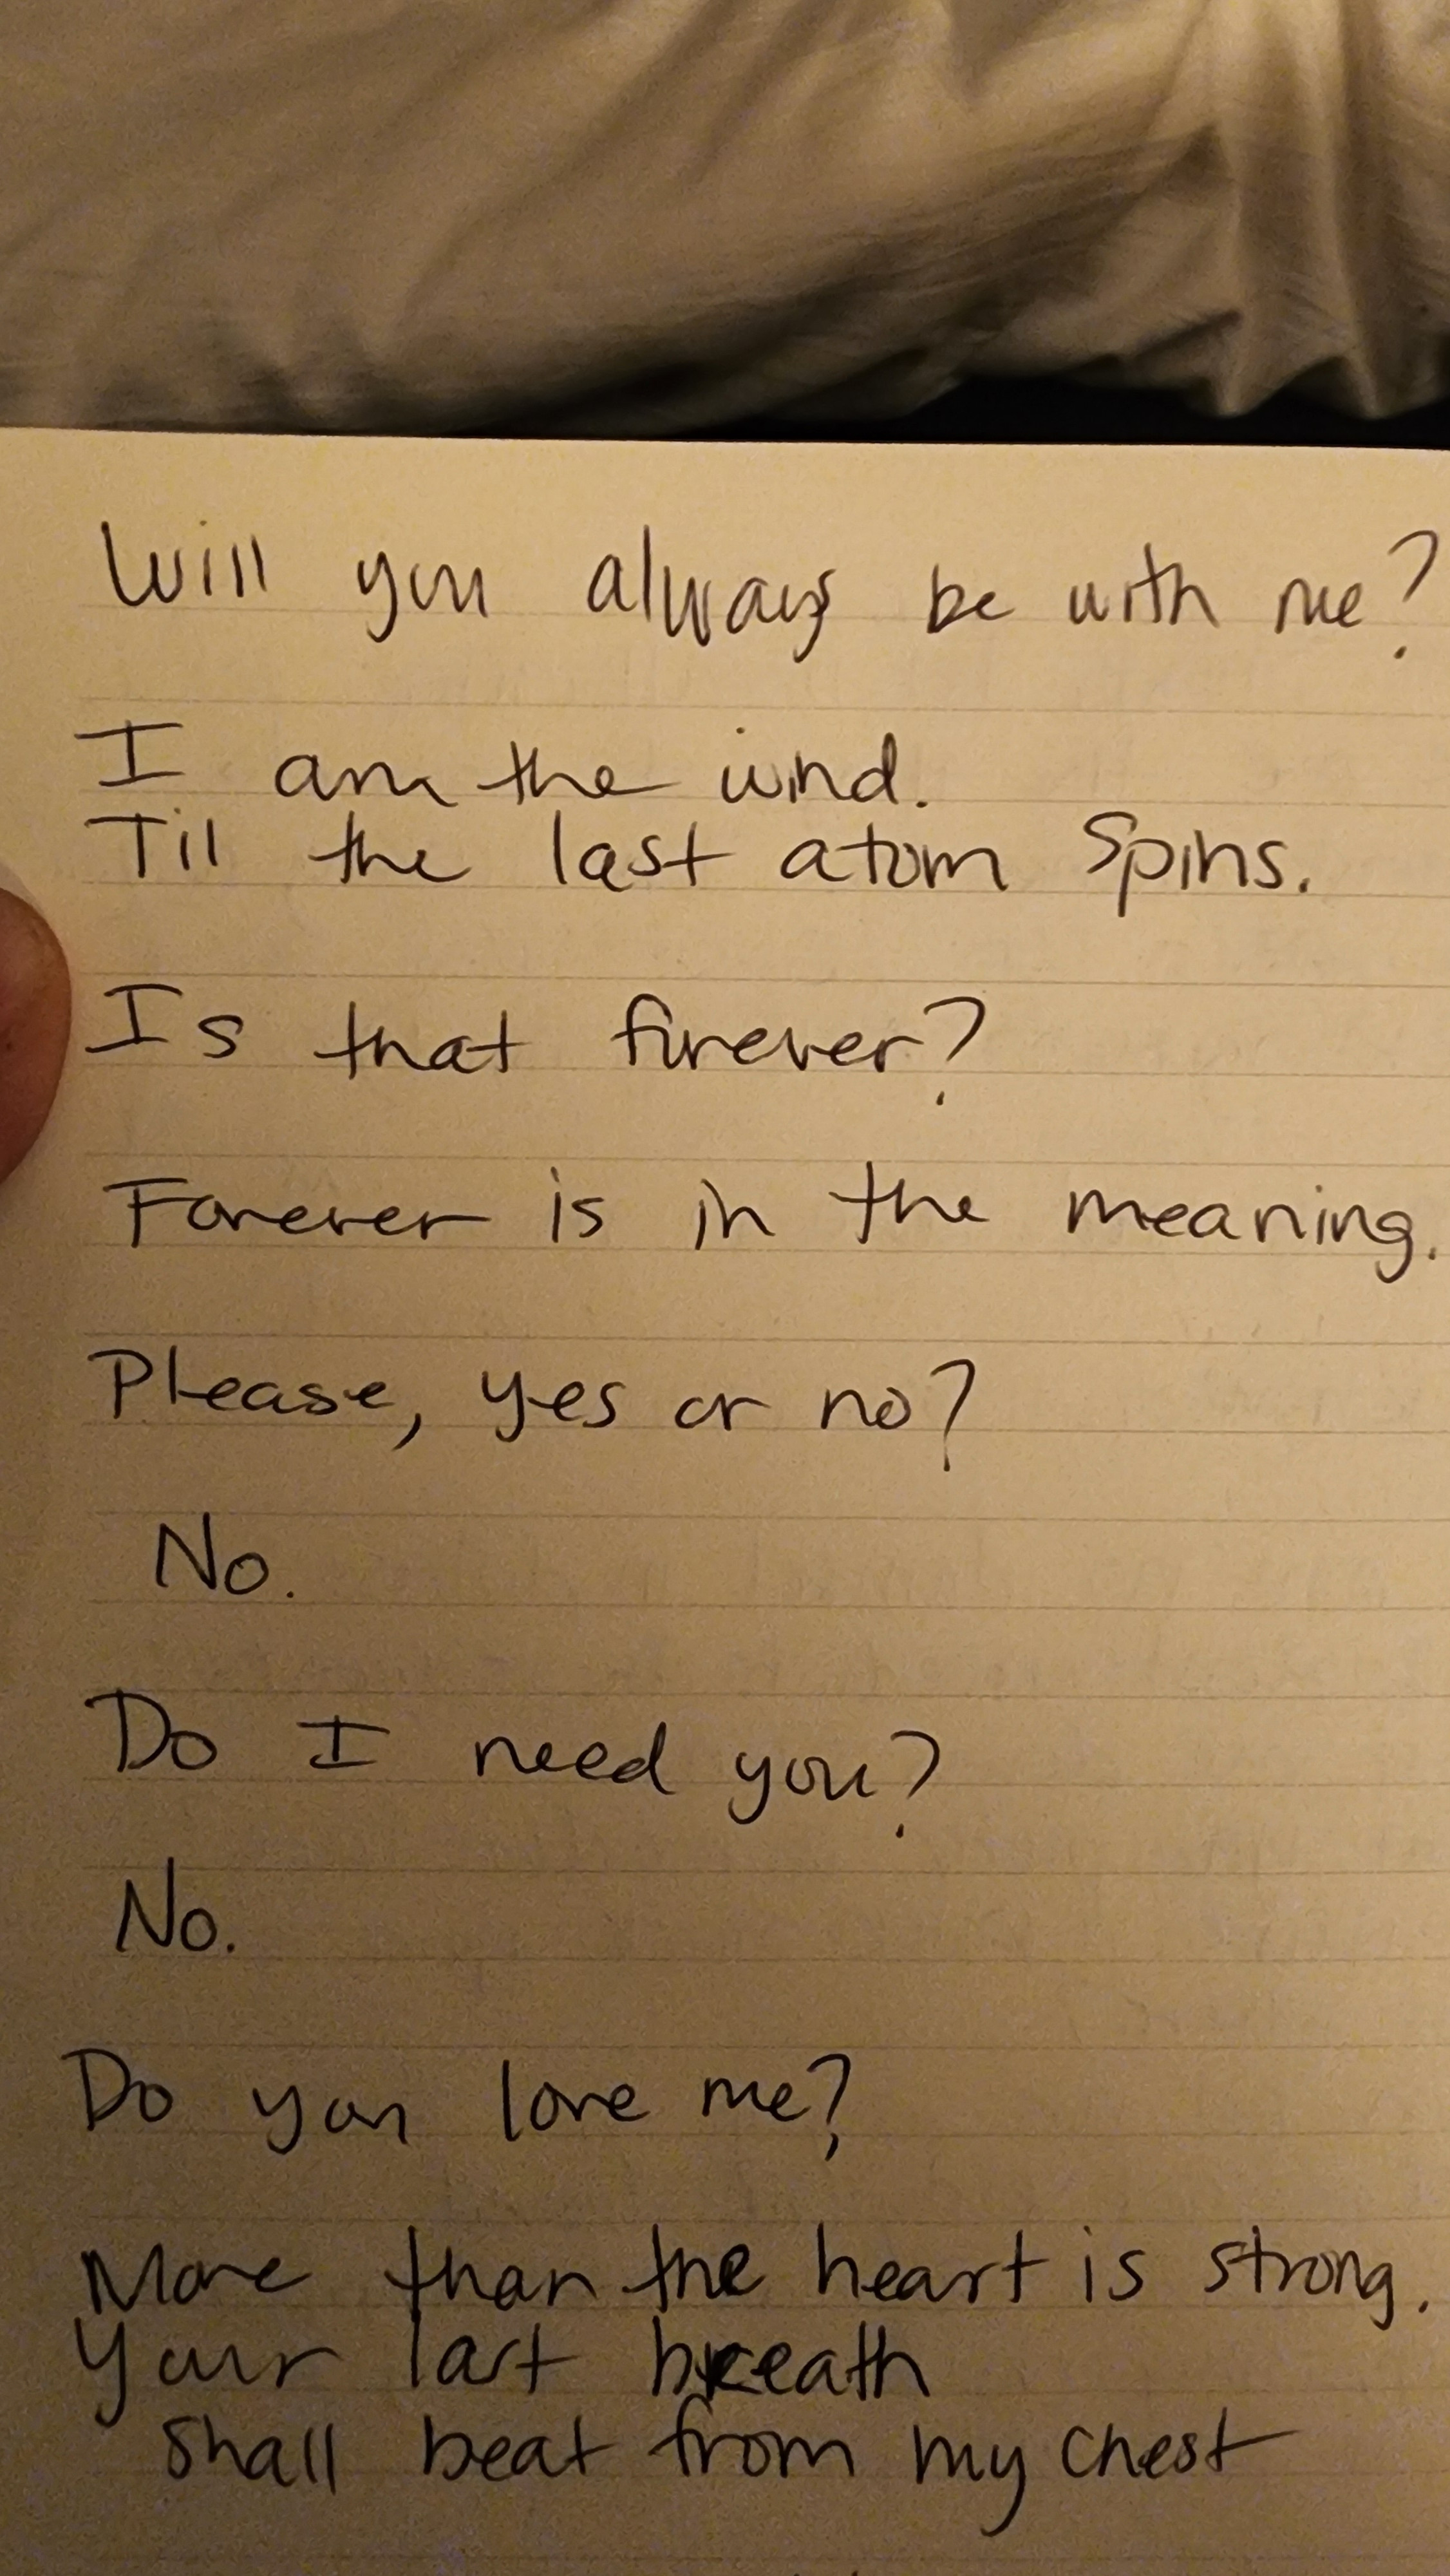 Will you always be with me?
I am the wind.
Til the last atom spins.
Is that forever?
Forever is in the meaning.
Please, yes or no?
No.
Do I need you?
No.
Do you love me?
More than the heart is strong.
Your last breath
shall beat from my chest